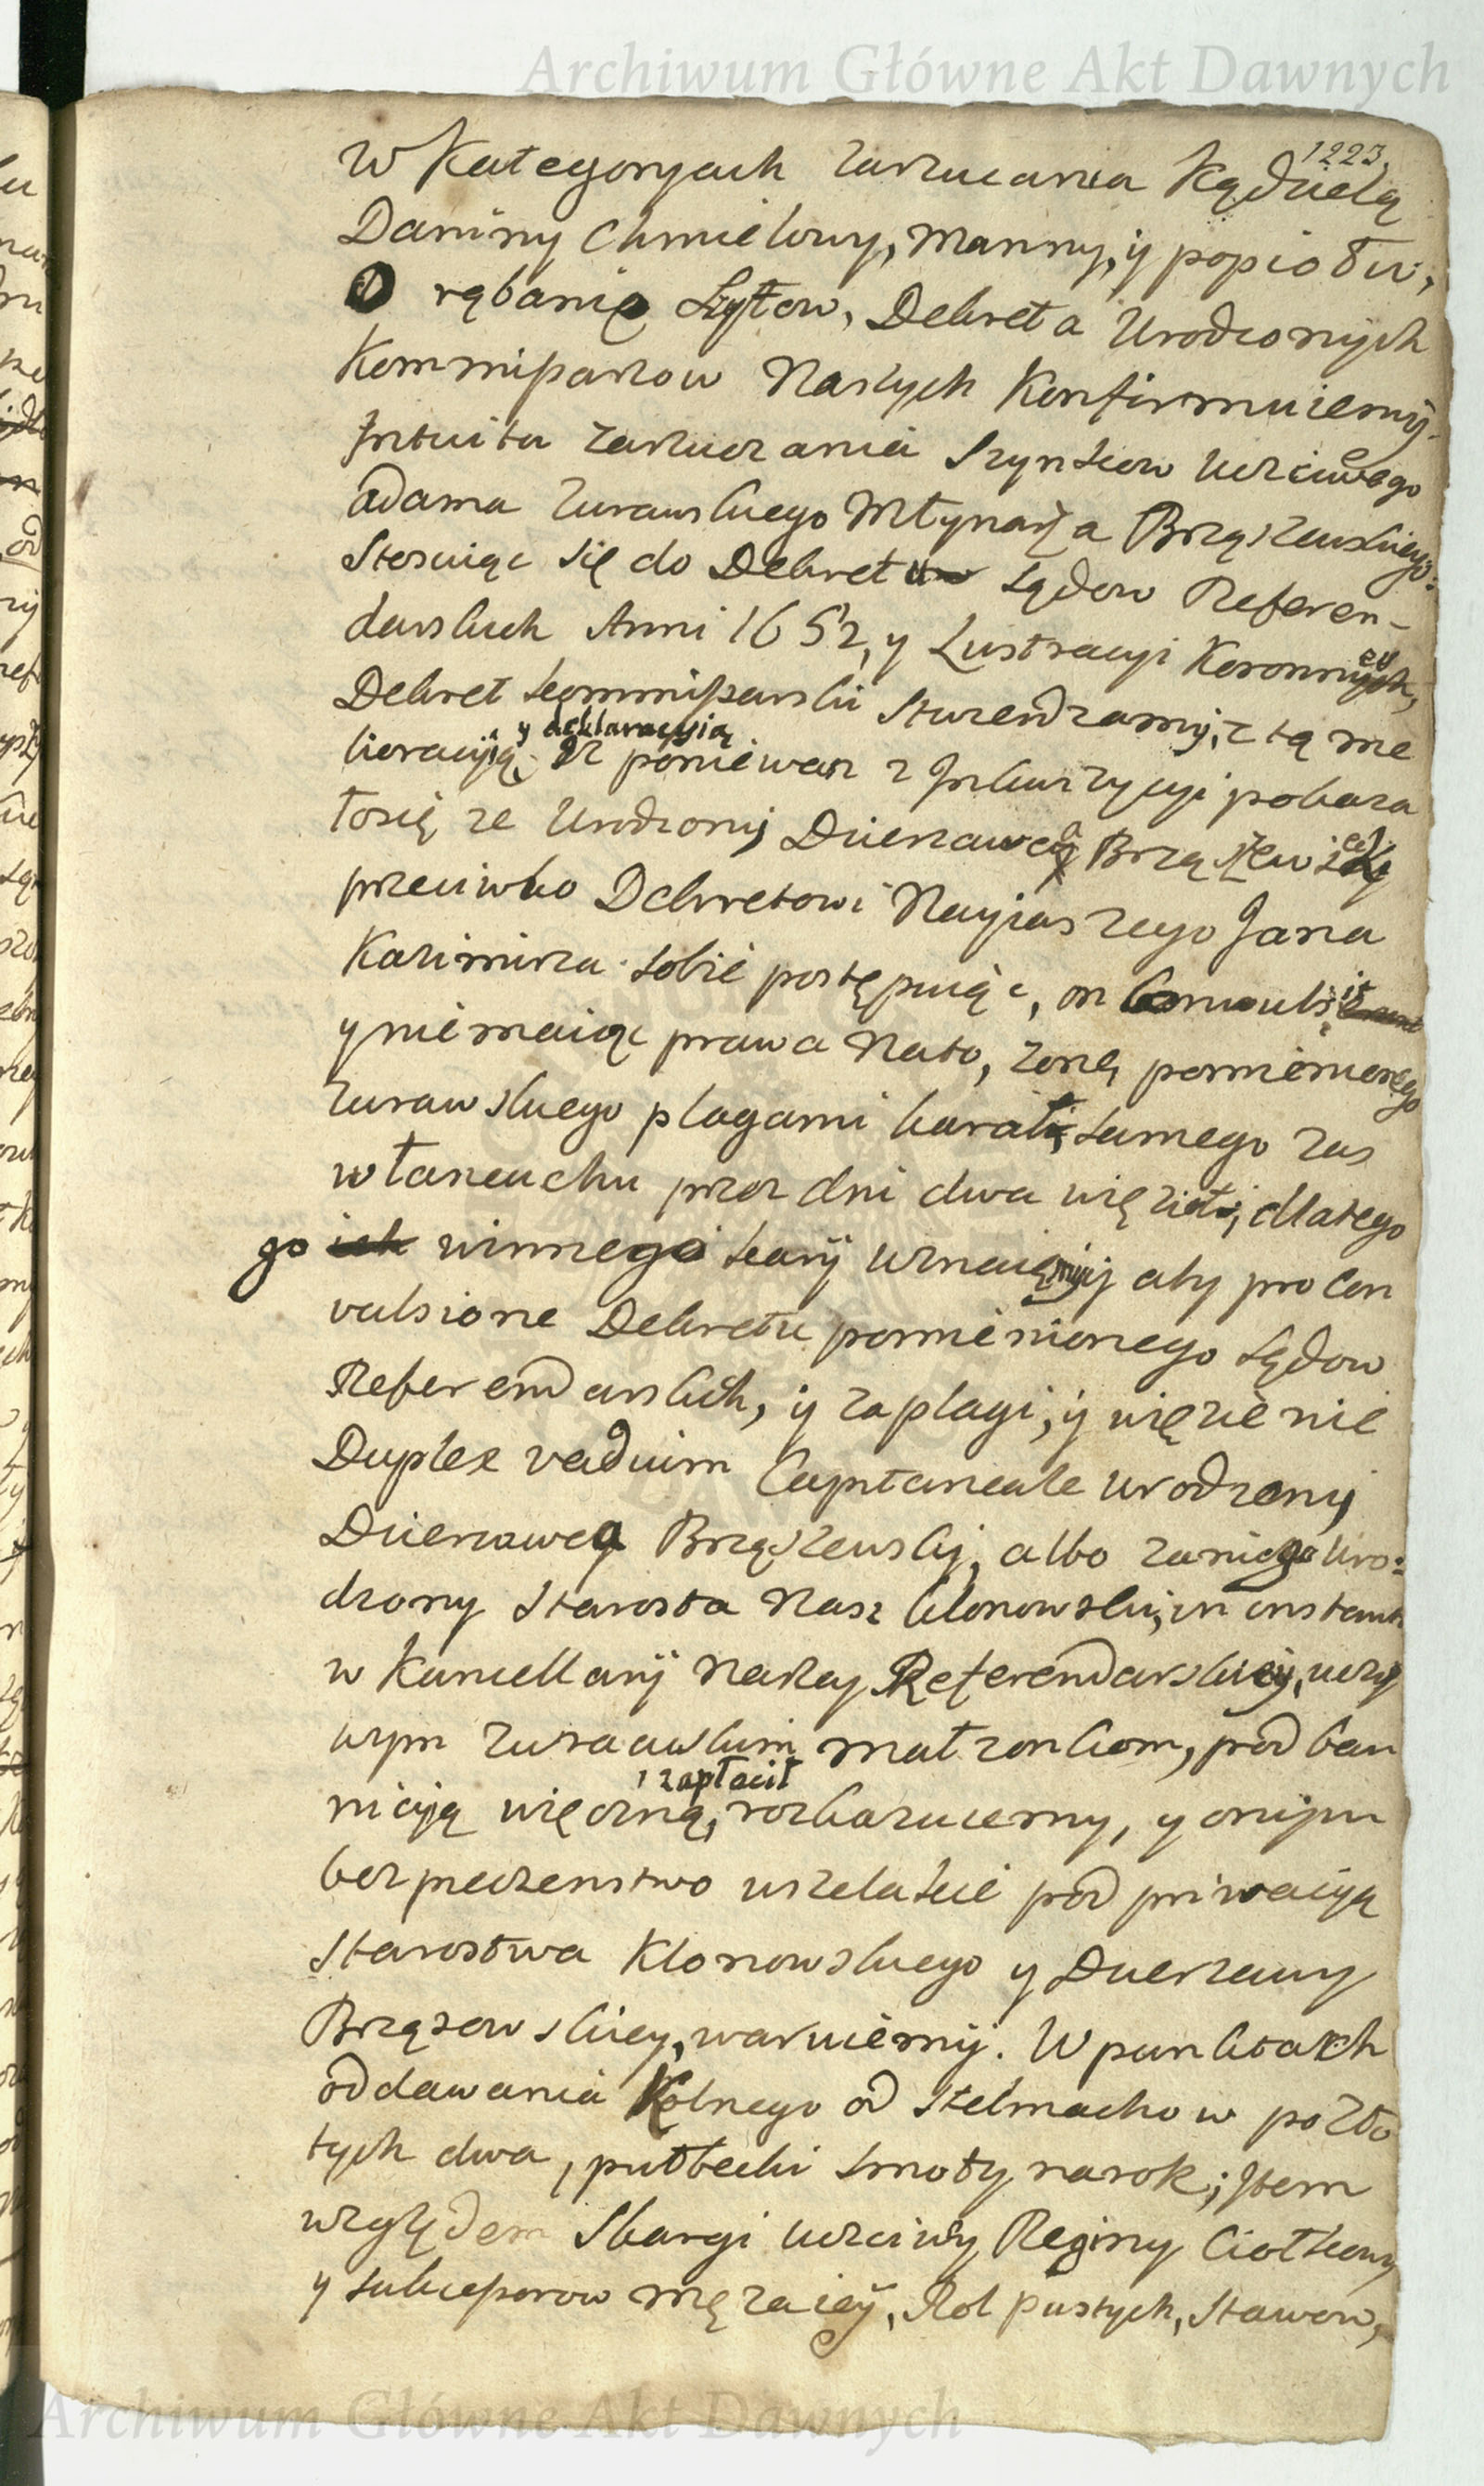 Archiwum Główne Akt Dawnych
1223.
W Kategoryach zarzucania Kądzielą
Daniny Chmielowy, Manny, y popiołu,
O rąbanię Szytow, Dekreta Urodzonych
Kommissarzow Naszych Konfirmuiemy.
Intuitu zarzucania Szynkow uczciwego
Adama Zurawskiego Młynarza Brząszewskiego:
Stosuiąc się do Dekretu Sądow Referen-
darskich Anni 1652, y Lustracyi Koronney,
Dekret kommissarski Stwierdzamy, z tą me
lioracyią, y deklaracyią Iż poniewasz z Inkwizycyi pokaza
łosię ze Urodzony Dzierzawca Brząszewski
przeciwko Dekretowi Nayiasszego Jana
Kazimirza sobie postępuiąc, on convulsit
y niemaiąc prawa Nato, zonę pomienionego
Zurawskiego plagami karał, samego zas
w łancuchu przez dni dwa więził, dlatego
go winnego kary Uznaiemy aby pro con
vulsione Dekretu pomienionego Sądow
Referendarskich, y za plagi, y więzienie
Duplex vadium Capitaneale Urodzony
Dzierzawca Brząszewski, albo zaniego Uro:
dzony Starosta Nasz Klonowski, in instanti
w Kancellaryi Naszey Referendarskiey, uczci
wym Zuraawskim małzonkom, pod ban
nicyją wieczną, zapłacił rozkazuiemy, y onym
bezpieczenstwo wszelakie pod priwacyą
Starostwa Klonowskiego y Dzierzawy
Brząszewskiey, waruiemy. W punktach
oddawania Rolnego od Stelmachow po zło
tych dwa, pułbecki smoły narok; Item
względem Skargi uczciwy Reginy Ciotkowy
y sukcessorow męza iey, Rol pustych, Stawow,
Archiwum Główne Akt Dawnych